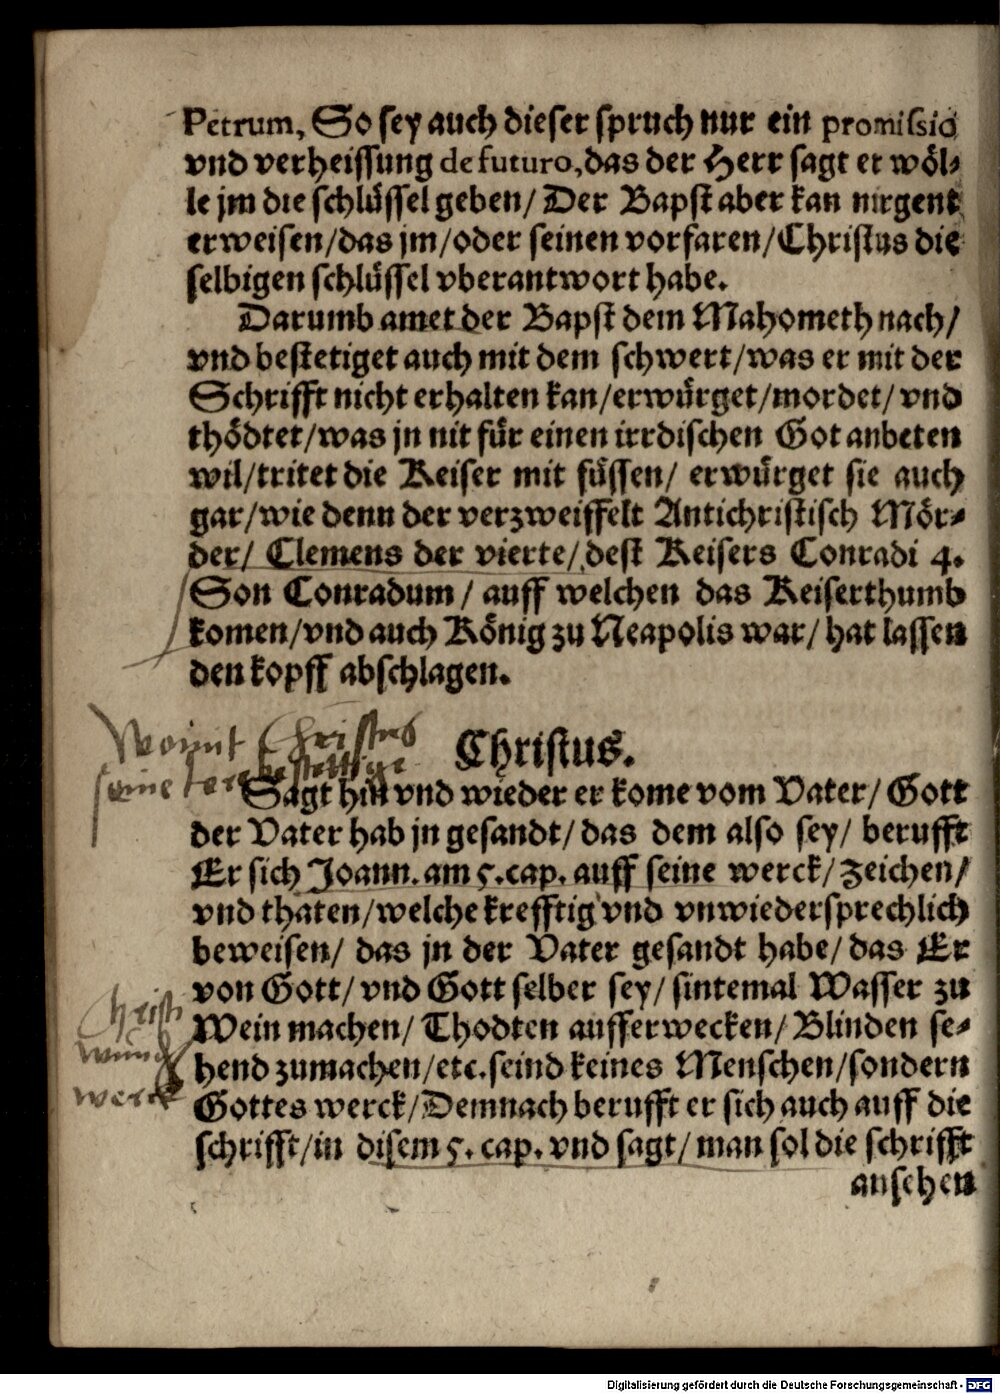 Petrum, So sey auch dieser spruch nur ein promissio
vnd verheissung de futuro, das der Herr sagt er wöl-
le jm die schlüssel geben/ Der Bapst aber kan nirgent
erweisen/das jm/oder seinen vorfaren/Christus die
selbigen schlüssel vberantwort habe.
Darumb amet der Bapst dem Mahometh nach/
vnd bestetiget auch mit dem schwert/was er mit der
Schrifft nicht erhalten kan/erwürget/mordet/ vnd
thödtet/was jn nit für einen irrdischen Got anbeten
wil/tritet die Keiser mit füssen/ erwürget sie auch
gar/wie denn der verzweiffelt Antichristisch Mör-
der/ Clemens der vierte/ dest Keisers Conradi 4.
Son Conradum/ auff welchen das Keiserthumb
komen/vnd auch König zu Neapolis war/ hat lassen
den kopff abschlagen.
Womit Christus
seine bestettige
Christus.
Sagt hin vnd wieder er kome vom Vater/ Gott
der Vater hab jn gesandt/ das dem also sey/ berufft
Er sich Joann. am 5. cap. auff seine werck/ zeichen/
vnd thaten/welche krefftig vnd vnwiedersprechlich
beweisen/ das jn der Vater gesandt habe/ das Er
von Gott/ vnd Gott selber sey/ sintemal Wasser zu
Wein machen/ Thodten aufferwecken/ Blinden se-
hend zumachen/etc. seind keines Menschen/sondern
Gottes werck/Demnach berufft er sich auch auff die
schrifft/in disem 5. cap. vnd sagt/ man sol die schrifft
ansehen
Christi
wund
werck
Digitalisierung gefördert durch die Deutsche Forschungsgemeinschaft - DFG